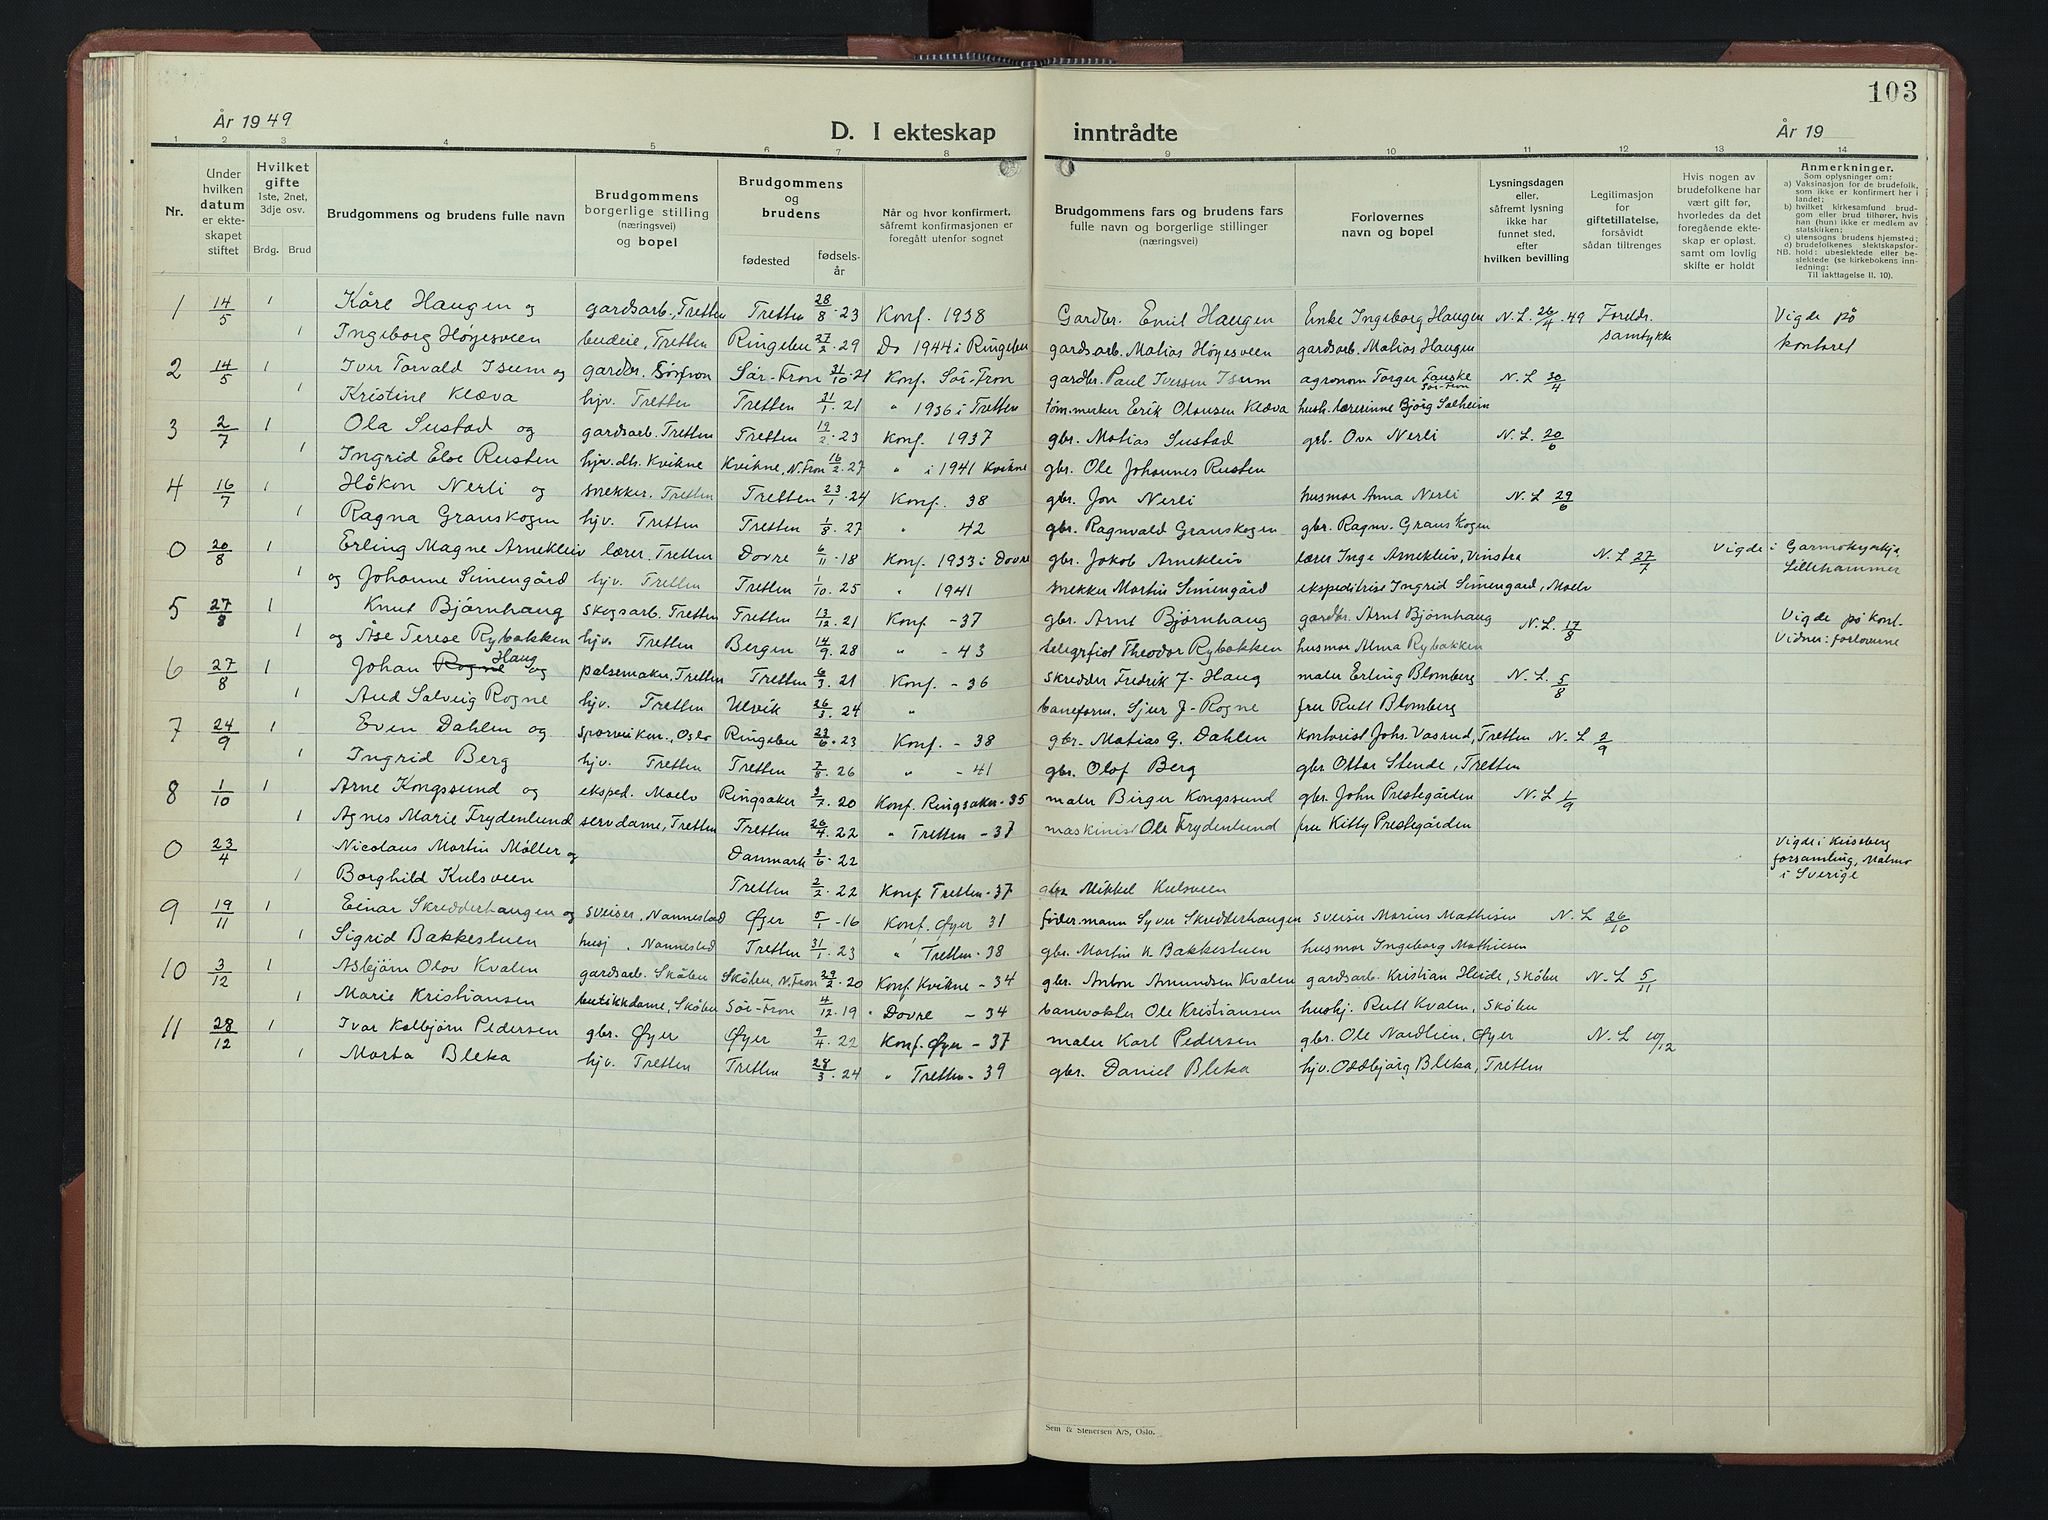 103
År 1949
D. I ekteskap inntrådte
År 19
1 2 3 4 5 6 7 8 9 10 11 12 13 14
Nr.
Under hvilken datum er ekteskapet stiftet
Hvilket gifte 1ste, 2net, 3dje osv. Brdg. Brud
Brudgommens og brudens fulle navn
Brudgommens borgerlige stilling (næringsvei) og bopel
Brudgommens og brudens fødested fødselsår
Når og hvor konfirmert, såfremt konfirmasjonen er foregått utenfor sognet
Brudgommens fars og brudens fars fulle navn og borgerlige stillinger (næringsvei)
Forlovernes navn og bopel
Lysningsdagen eller, såfremt lysning ikke har funnet sted, efter hvilken bevilling
Legitimasjon for giftetillatelse, forsåvidt sådan tiltrenges
Hvis nogen av brudefolkene har vært gift før, hvorledes da det foregående ekteskap er opløst, samt om lovlig skifte er holdt
Anmerkninger.
Som oplysninger om:
a) Vaksinasjon for de brudefolk, som ikke er konfirmert her i landet;
b) hvilket kirkesamfund brudgom eller brud tilhører, hvis han (hun) ikke er medlem av statskirken;
c) utensogns brudens hjemsted;
d) brudefolkenes slektskapsforhold: ubeslektede eller beslektede (se kirkebokens innledning:
NB.
Til iakttagelse II. 10).
1 14/5 1 Kåre Haugen og gardsarb., Tretten Tretten 28/8 23 Konf. 1938 Gardbr. Emil Haugen Enke Ingeborg Haugen N.L. 26/4 49 Foreldr. samtykke Vigde på
1 Ingeborg Høyesveen budeie, Tretten Ringebu 27/2 29 Do 1944 i Ringebu gardsarb. Matias Høyesveen gardsarb. Matias Haugen kontoret
2 14/5 1 Iver Torvald Isum og gardbr. Sørfron Sør-Fron 31/10 21 Konf. Sør-Fron gardbr. Paul Iversen Isum agronom Torger Fauske Sør-Fron N.L 30/4
1 Kristine Kleva hjv. Tretten Tretten 21/1 21 " 1936 i Tretten tøm.merker Erik Olausen Kleva hush.lærerinne Bjørg Solheim
3 2/7 1 Ola Sustad og gardsarb. Tretten Tretten 19/2 23 Konf. 1937 gbr. Matias Sustad grb. Ove Nerli N.L. 20/6
1 Ingrid Eloe Rusten hjv. dtr. Kvikne Kvikne, N.Fron 16/2 27 " i 1941 Kvikne gbr. Ole Johannes Rusten
4 16/7 1 Håkon Nerli og snekker. Tretten Tretten 23/1 24 Konf. 38 gbr. Jon Nerli husmor Anna Nerli N.L 29/6
1 Ragna Granskogen hjv. Tretten Tretten 1/8 27 " 42 gbr. Ragnvald Granskogen gbr. Ragnv. Granskogen
0 20/8 1 Erling Magne Arnekleiv lærer, Tretten Dovre 6/11 18 Konf. 1933 i Dovre gbr. Jakob Arnekleiv lærer Inge Arnekleiv, Vinstra N.L 27/7 Vigde i Garmokyrkja,
1 og Johanne Simengård hjv. Tretten Tretten 1/10 25 " 1941 snekker Martin Simengård ekspeditrise Ingrid Simengard, Moelv Lillehammer
5 27/8 1 Knut Bjørnhaug skogsarb. Tretten Tretten 13/12 21 Konf - 37 gbr. Arnt Bjørnhaug gardbr. Arnt Bjørnhaug N.L. 17/8 Vigde på kont.
1 og Åse Terese Rybakken hjv. Tretten Bergen 14/9 28 " - 43 telegrfist Theodor Rybakken husmor Alma Rybakken Vidner: forloverne
6 27/8 1 Johan Rogne Haug og pølsemaker, Tretten Tretten 6/3 21 Konf. - 36 skredder Fredrik J. Haug maler Erling Blomberg N.L. 5/8
1 Aud Solveig Rogne hjv. Tretten Ulvik 26/3 24 " baneform. Sjur J. Rogne fru Rutt Blomberg
7 24/9 1 Even Dahlen og sporveiksn., Oslo Ringebu 23/6 23 Konf. - 38 gbr. Matias G. Dahlen kontorist Johs. Vasrud, Tretten N.L 2/9
1 Ingrid Berg hjv. Tretten Tretten 7/8 26 " - 41 gbr. Olof Berg gbr Ottar Stende, Tretten
8 1/10 1 Arne Kongssund og eksped. Moelv Ringsaker 3/7 20 Konf. Ringsaker - 35 maler Birger Kongssund gbr. John Prestegården N.L 1/9
1 Agnes Marie Frydenlund servdame, Tretten Tretten 26/4 22 " Tretten - 37 maskinist Ole Frydenlund fru Kitty Prestegården
0 23/4 Nicolaus Martin Møller og Danmark 3/6 22 Vigde i Kirseberg
1 Borghild Kulsveen Tretten 2/2 22 Konf Tretten - 37 gbr Mikkel Kulsveen forsamling, Malmø i Sverige
9 19/11 1 Einar Skredderhaugen og sveiser, Nannestad Øyer 5/1 - 16 Konf. Øyer 31 føder.mann Syver Skredderhaugen sveiser Marius Mathisen N.L 26/10
1 Sigrid Bakkestuen husj, Nannestad Tretten 31/1 23 " Tretten - 38 gbr. Martin N. Bakkestuen husmor Ingeborg Mathiesen
10 3/12 1 Asbjørn Olov Kvalen gardsarb. Skåbu Skåbu, N.Fron 29/2 20 Konf. Kvikne - 34 gbr. Anton Amundsen Kvalen gardsarb. Kristian Heide, Skåbu N.L 5/11
1 Marie Kristiansen butikkdame, Skåbu Sør-Fron 4/12 19 " Dovre - 34 banevokter Ole Kristiansen hushj. Rutt Kvalen, Skåbu
11 28/12 1 Ivar Kolbjørn Pedersen gbr. Øyer Øyer 9/4 22 Konf. Øyer - 37 maler Karl Pedersen gbr. Ole Nordlien, Øyer N.L 10/12
1 Marta Bleka hjv. Tretten Tretten 28/3 24 " Tretten - 39 gbr. Daniel Bleka hjv. Oddbjørg Bleka, Tretten
Sem & Stenersen A/S, Oslo.